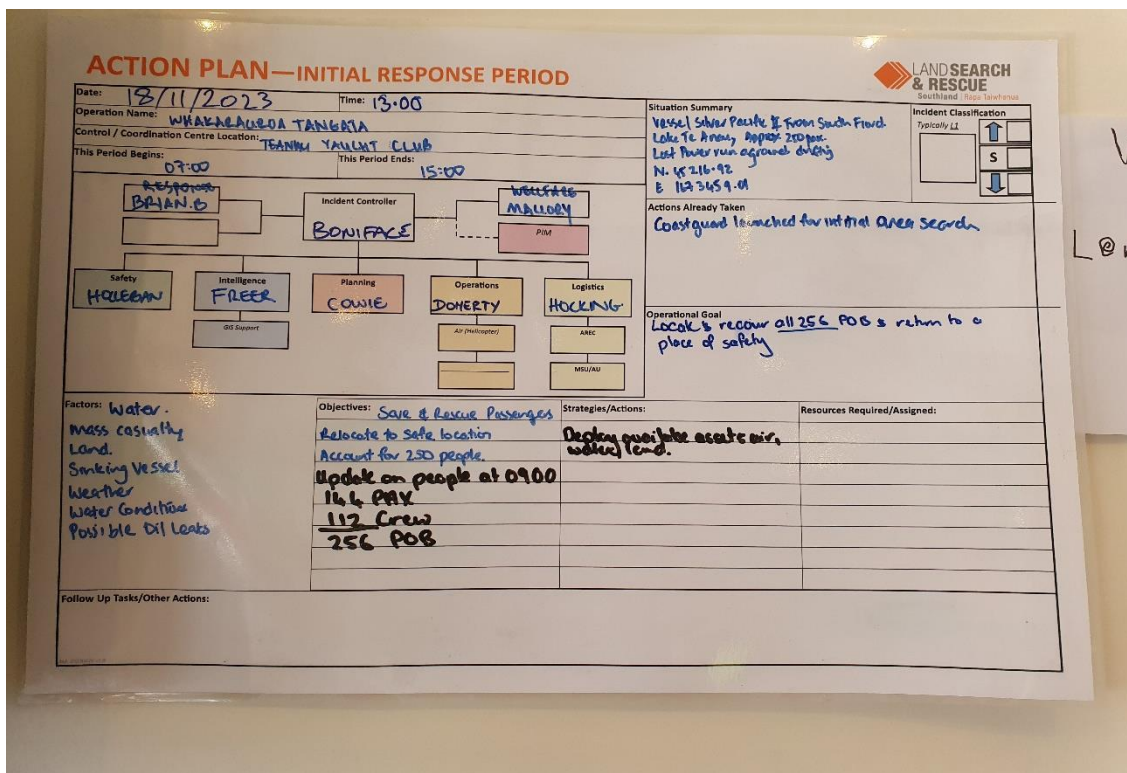 ACTION PLAN—INITIAL RESPONSE PERIOD
LAND SEARCH
& RESCUE
Southland
Date: 18/11/2023
Time: 13.00
Operation Name: WHAKARAUROA TANGATA
Control / Coordination Centre Location: TEANAU YAUCHT CLUB
This Period Begins: 07:00
This Period Ends: 15:00
RESPONSE
BRIAN.B
Incident Controller
BONIFACE
WELLFARE
MALLORY
PIM
Safety
Intelligence
FREER
GIS Support
Planning
COWIE
Operations
DOHERTY
Air (Helicopter)
Logistics
HOCKING
AREC
MSU/AU
Situation Summary
Vessel Silver Pacific II From South Fiord
Lake Te Anau, Approx 250 pax.
Lost Power run aground drifting
N. 45 216.92
E 1673459.01
Incident Classification
Typically L1
S
Actions Already Taken
Coastguard launched for initial area search
Operational Goal
Locate & recover all 256 POB & return to a
place of safety
Factors: Water.
Mass casualty
Land.
Sinking Vessel
Weather
Water Conditions
Possible Oil Leaks
Objectives: Save & Rescue Passengers
Relocate to Safe location
Account for 250 people.
Update on people at 0900
144 PAX
112 Crew
256 POB
Strategies/Actions:
Deploy available assets air,
water, land.
Resources Required/Assigned:
Follow Up Tasks/Other Actions: